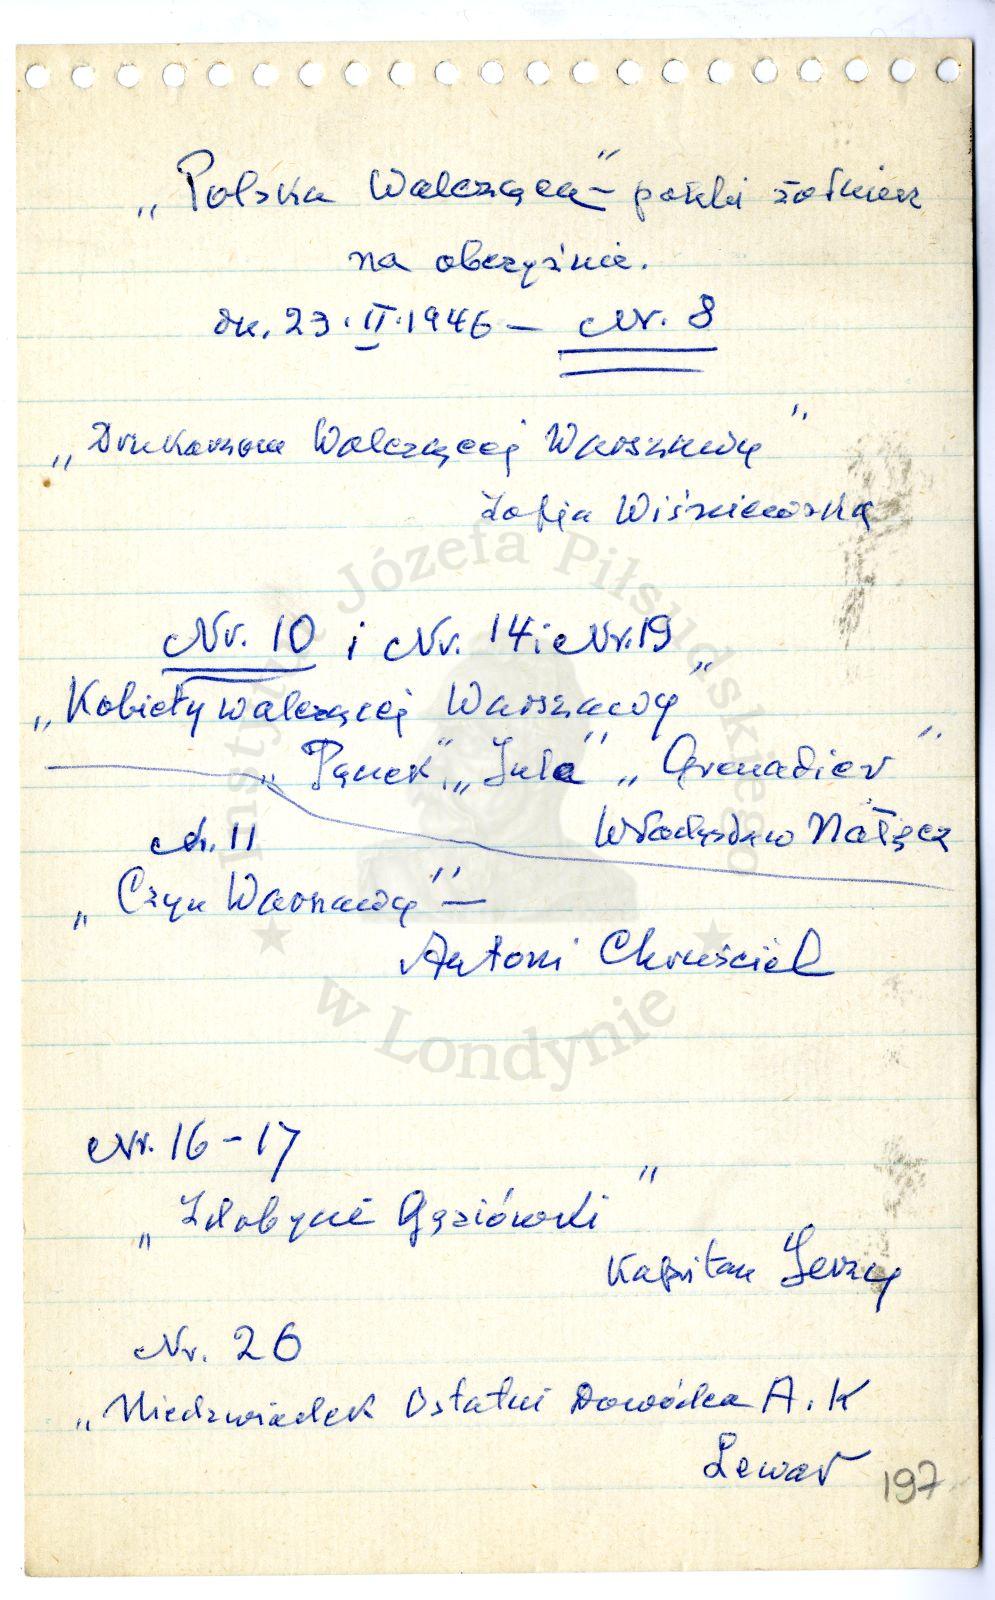 „Polska Walcząca" – polski żołnierz
na obczyźnie.
dn. 23.II.1946 – Nr. 8
„Drukarnie Walczącej Warszawy"
Zofja Wiśniewska
Nr. 10 i Nr. 14 i Nr. 19
„Kobiety walczącej Warszawy"
„Pączek", „Jula" „Grenadier"
Władysław Nałęcz
Nr. 11
„Czyn Warszawy" –
Antoni Chruściel
Nr. 16-17
„Zdobycie Gęsiówki"
Kapitan Jerzy
Nr. 26
„Niedzwiadek Ostatni Dowódca A.K
Lewar
197
Instytut Józefa Piłsudskiego
w Londynie